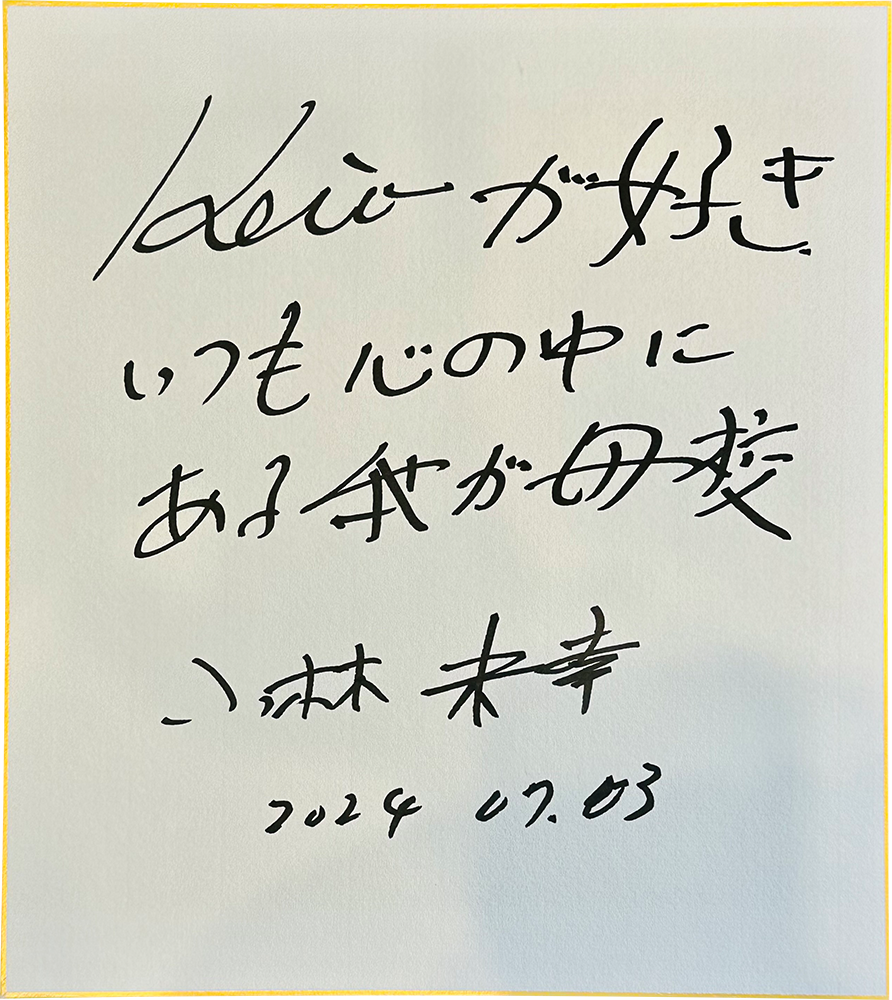 Keioが好き
いつも心の中に
ある我が母校
小林 未幸
2024 07.03